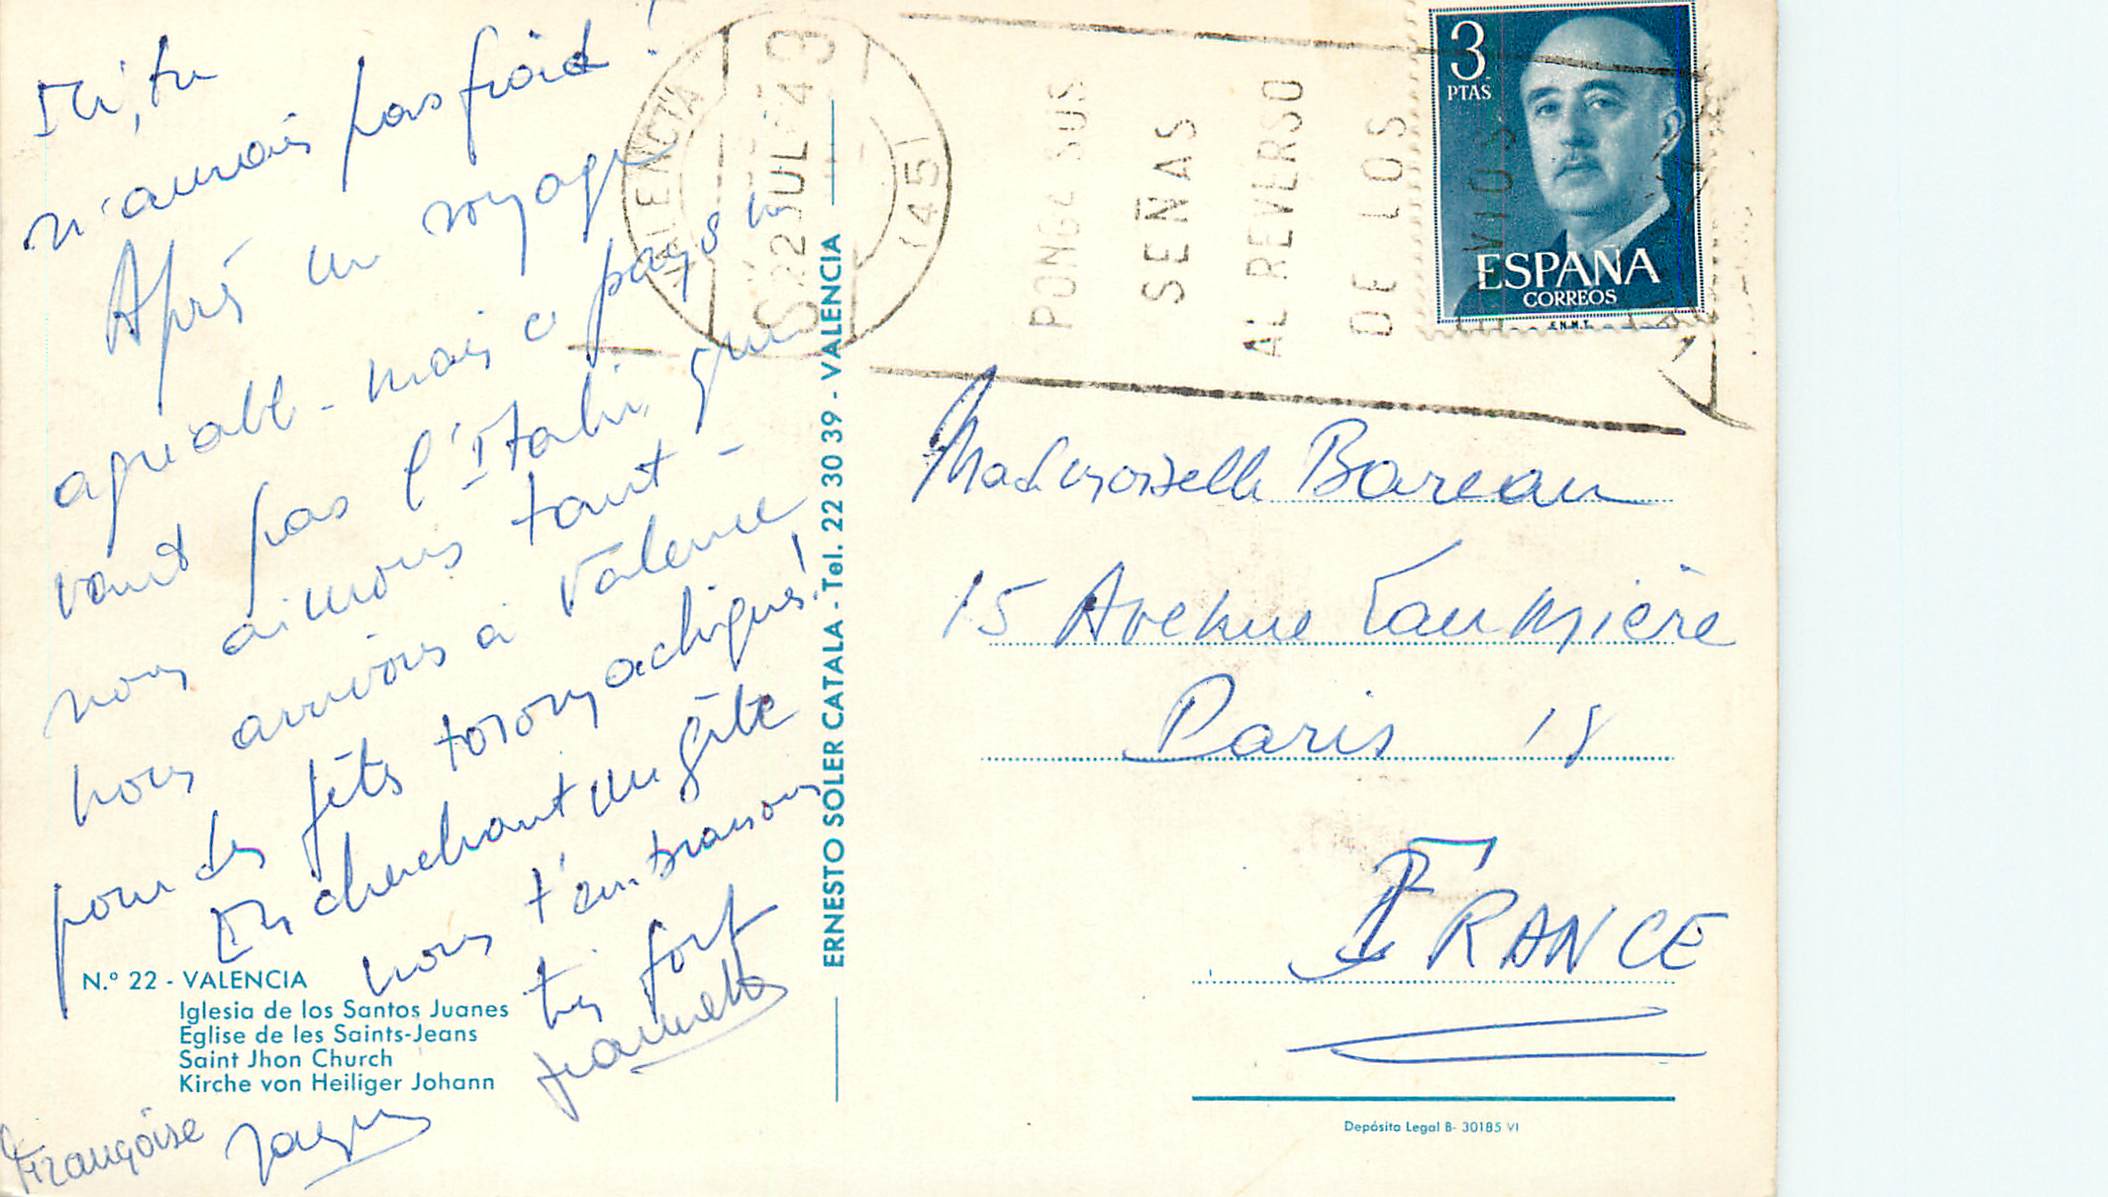 Ici, tu
n'aurais pas froid !
Après un voyage
agréable - mais ce pays ne
vaut pas l'Italie que
nous aimons tant -
nous arrivons à Valence
pour des fêtes toromachiques !
En cherchant un gîte
nous t'embrassons
très fort
Jeannette
Jacques
Françoise
N.º 22 - VALENCIA
Iglesia de los Santos Juanes
Eglise de les Saints-Jeans
Saint Jhon Church
Kirche von Heiliger Johann
ERNESTO SOLER CATALA - Tel. 22 30 39 - VALENCIA
VALENCIA
22 JUL
(45)
PONGA SUS
SEÑAS
AL REVERSO
DE LOS
3
PTAS
ESPAÑA
CORREOS
F.N.M.T.
Mademoiselle Bareau
15 Avenue
Paris 18
FRANCE
Depósito Legal B- 30185 VI